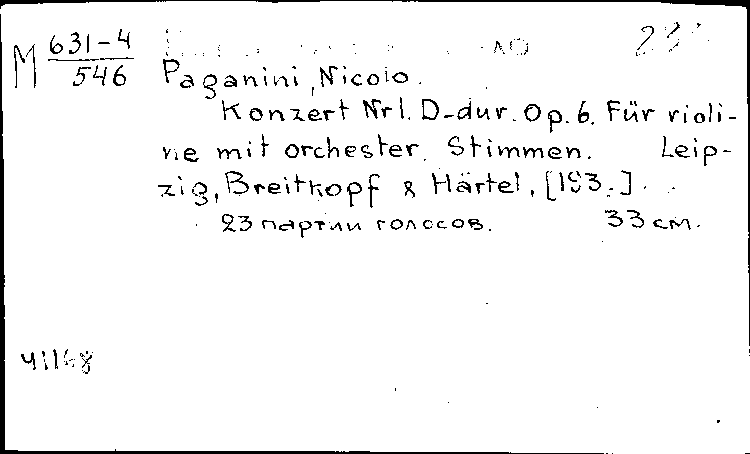 M 631-4
546
Paganini, Nicolo.
Konzert Nr 1. D-dur. Op. 6. Für violi-
ne mit orchester. Stimmen. Leip-
zig, Breitkopf & Härtel, [193.]
23 партии голосов. 33 см.